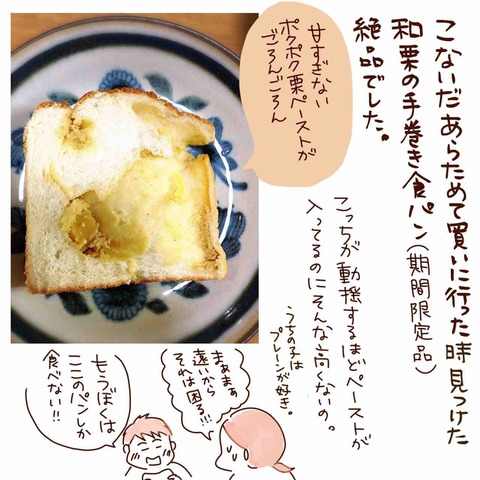 こないだあらためて買いに行った時見つけた
和栗の手巻き食パン(期間限定品)
絶品でした。
甘すぎない
ポクポク栗ペーストが
ごろんごろん
こっちが動揺するほどペーストが
入ってるのにそんな高くないの。
うちの子は
プレーンが好き。
まぁまぁ
遠いから
それは困る!!
もうぼくは
ここのパンしか
食べない!!